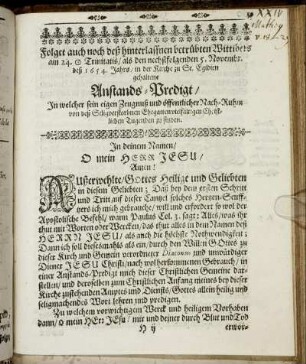 Folget auch noch deß hinterlaßnen betrübten Wittibers
am 24. ⊙ Trinitatis, als den nechstfolgenden 5. Novembr.
deß 1654. Jahrs, in der Kirche zu St. Egidien
gehaltene
Anstands-Predigt,
In welcher sein eigen Zeugnuß und öffentlicher Nach-Ruhm
von deß Seligverstorbenen
lichen Tugenden zu finden.
In deinem Namen,
O mein HERR JESU,
Amen!
Außerwehlte, GOttes Heilige und Geliebten
in diesem Geliebten; Daß bey dem ersten Schritt
und Tritt auf dieser Cantzel solches Hertzen-Seuff-
tzers ich mich gebrauche, will und erfordert so wol der
Apostolische Befehl, wann Paulus Col. 3. sagt: Alles, was ihr
thut mit Worten oder Wercken, das thut alles in dem Namen deß
HERRN JESU, als auch die höchste Nothwendigkeit;
Dann ich soll diesesmahls als ein, durch den Willen GOttes zu
dieser Kirch und Gemein verordneter Diaconus und unwürdiger
Diener JESU Christi, nach wol herkommenem Gebrauch, in
einer Anstands-Predigt mich dieser Christlichen Gemeine dar-
stellen, und derselben zum Christlichen Anfang meines bey dieser
Kirche zustehenden Amptes und Diensts, GOttes allein heilig und
seligmachendes Wort lehren und predigen.
Zu welchem vorwichtigen Werck und heiligem Vorhaben
dann, o mein HErr JEsu, mit und deiner durch Blut und Tod
H ij
erwor-